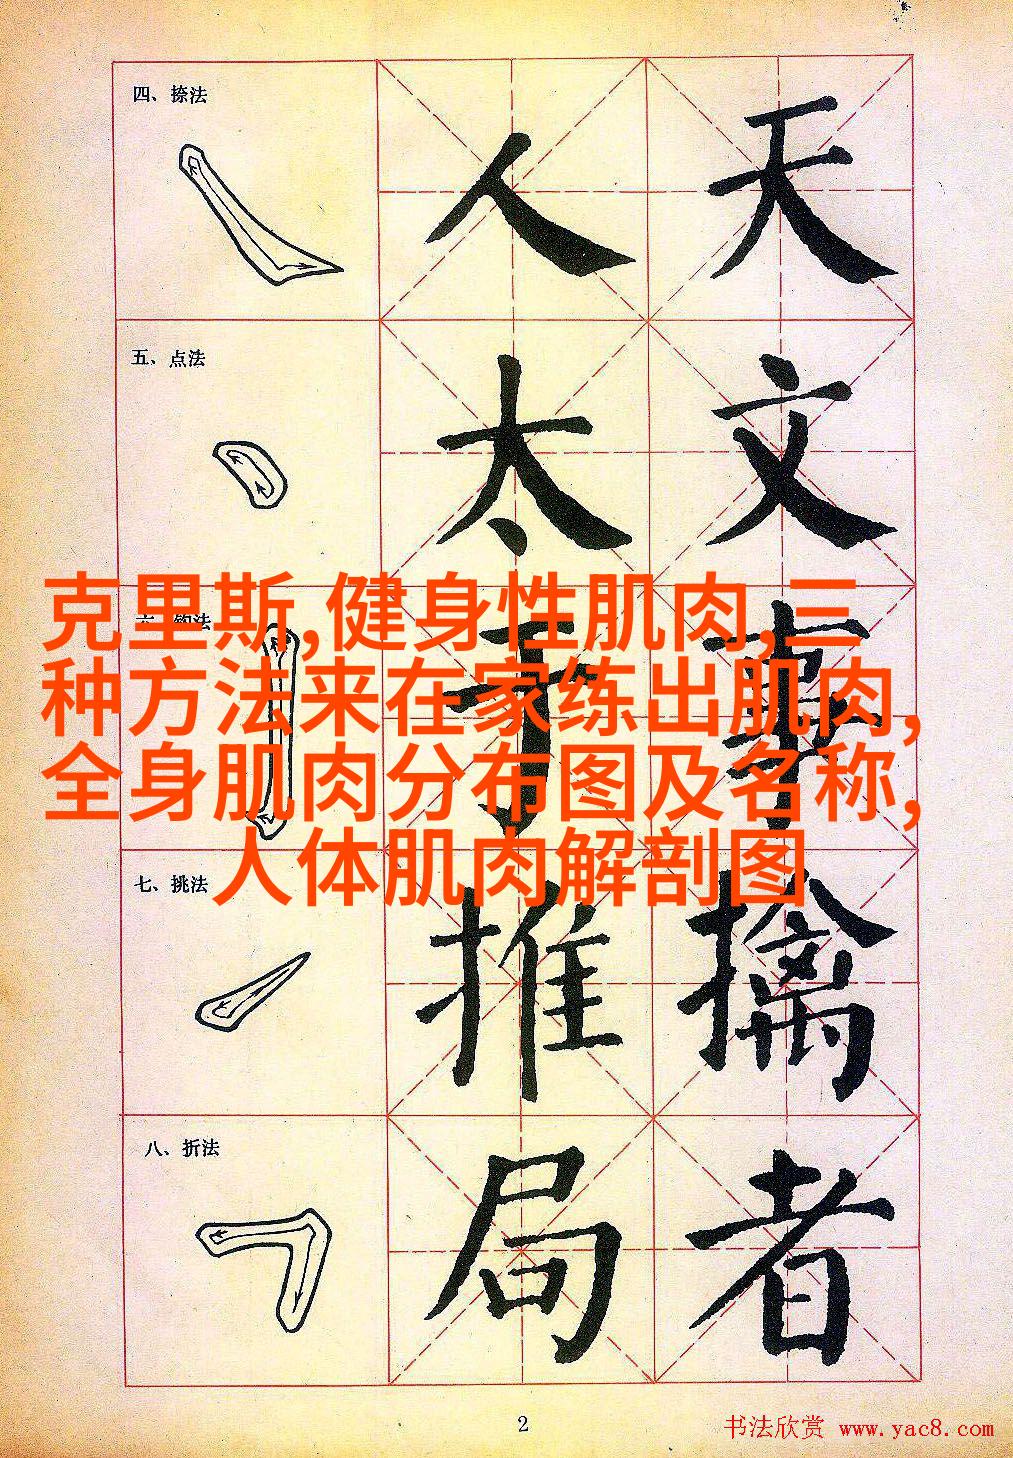 四、捺法
人 天
五、点法
太 文
克里斯,健身性肌肉,三
种方法来在家练出肌肉,
全身肌肉分布图及名称,
人体肌肉解剖图
六、钩法
于 事
七、挑法
推 擒
八、折法
局 者
2
书法欣赏 www.yac8.com